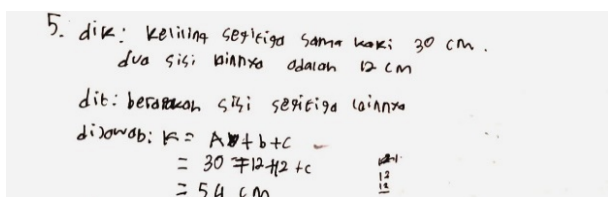 5. dik: keliling segitiga sama kaki 30 cm.
dua sisi lainnya adalah 12 cm
dit: berapakah sisi segitiga lainnya
dijawab: K = A + b + c
= 30 = 12 + 12 + c
12
= 54 cm
12